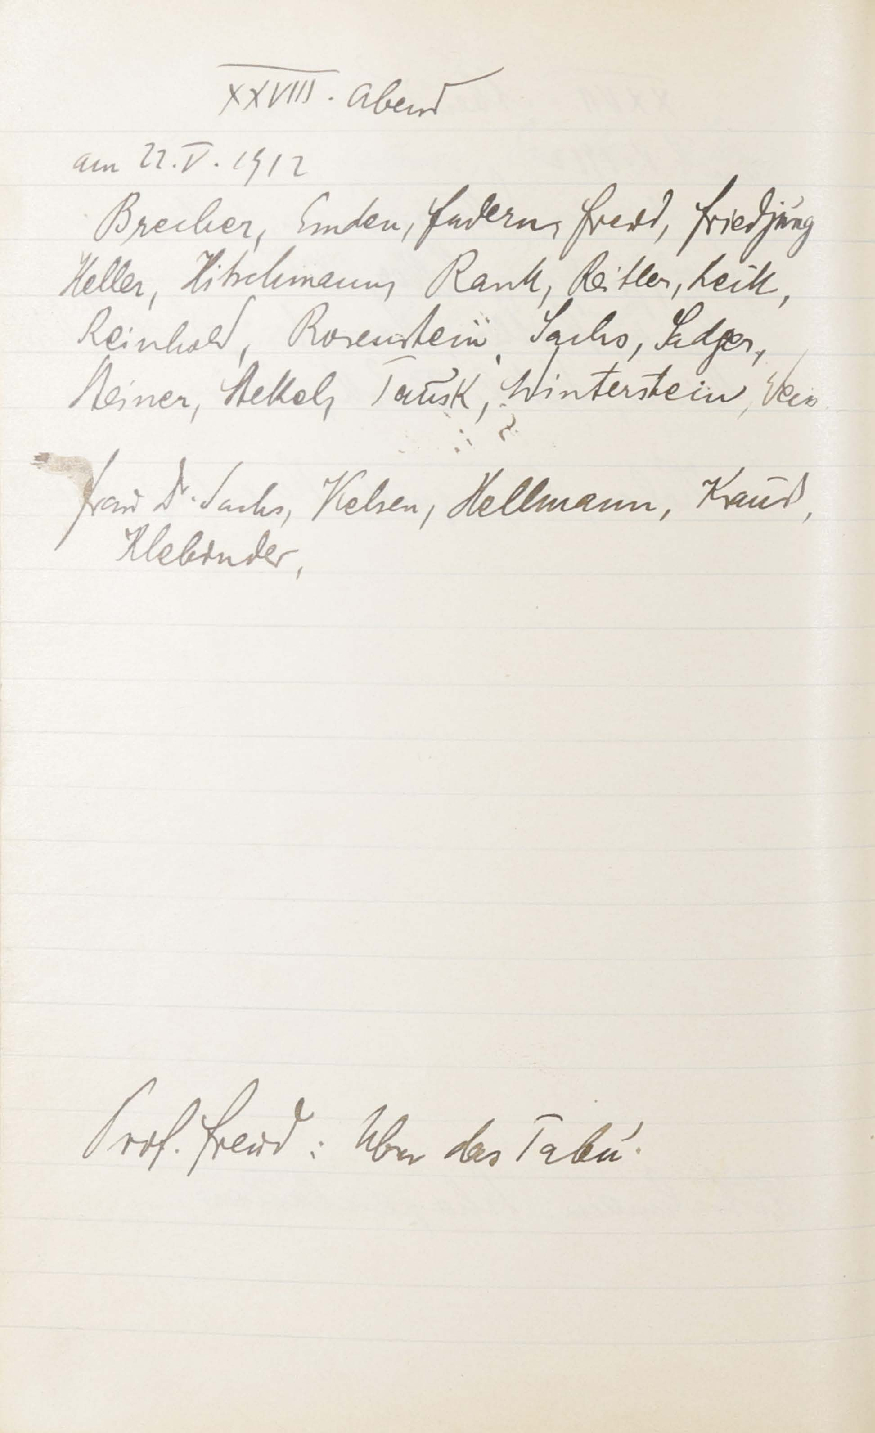 XXVIII. Abend
am 22. V. 1912
Brecher, Emden, Federn, Freud, Friedjung
Heller, Hitschmann, Rank, Reitler, Reik,
Reinhold, Rosenstein, Sachs, Sadger,
Steiner, Stekel, Tausk, Winterstein,
Frau Dr. Sachs, Kelsen, Hellmann, Kraus,
Klebinder,
Prof. Freud: Über das Tabu.